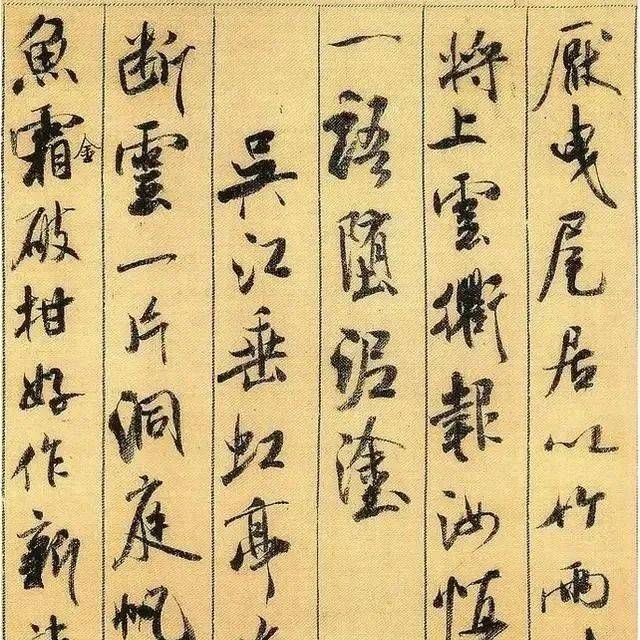 厭曳尾居以竹兩
將上雲衢報汝慎
一語墮泥塗
吳江垂虹亭
断雲一片洞庭帆
魚霜金破柑好作新